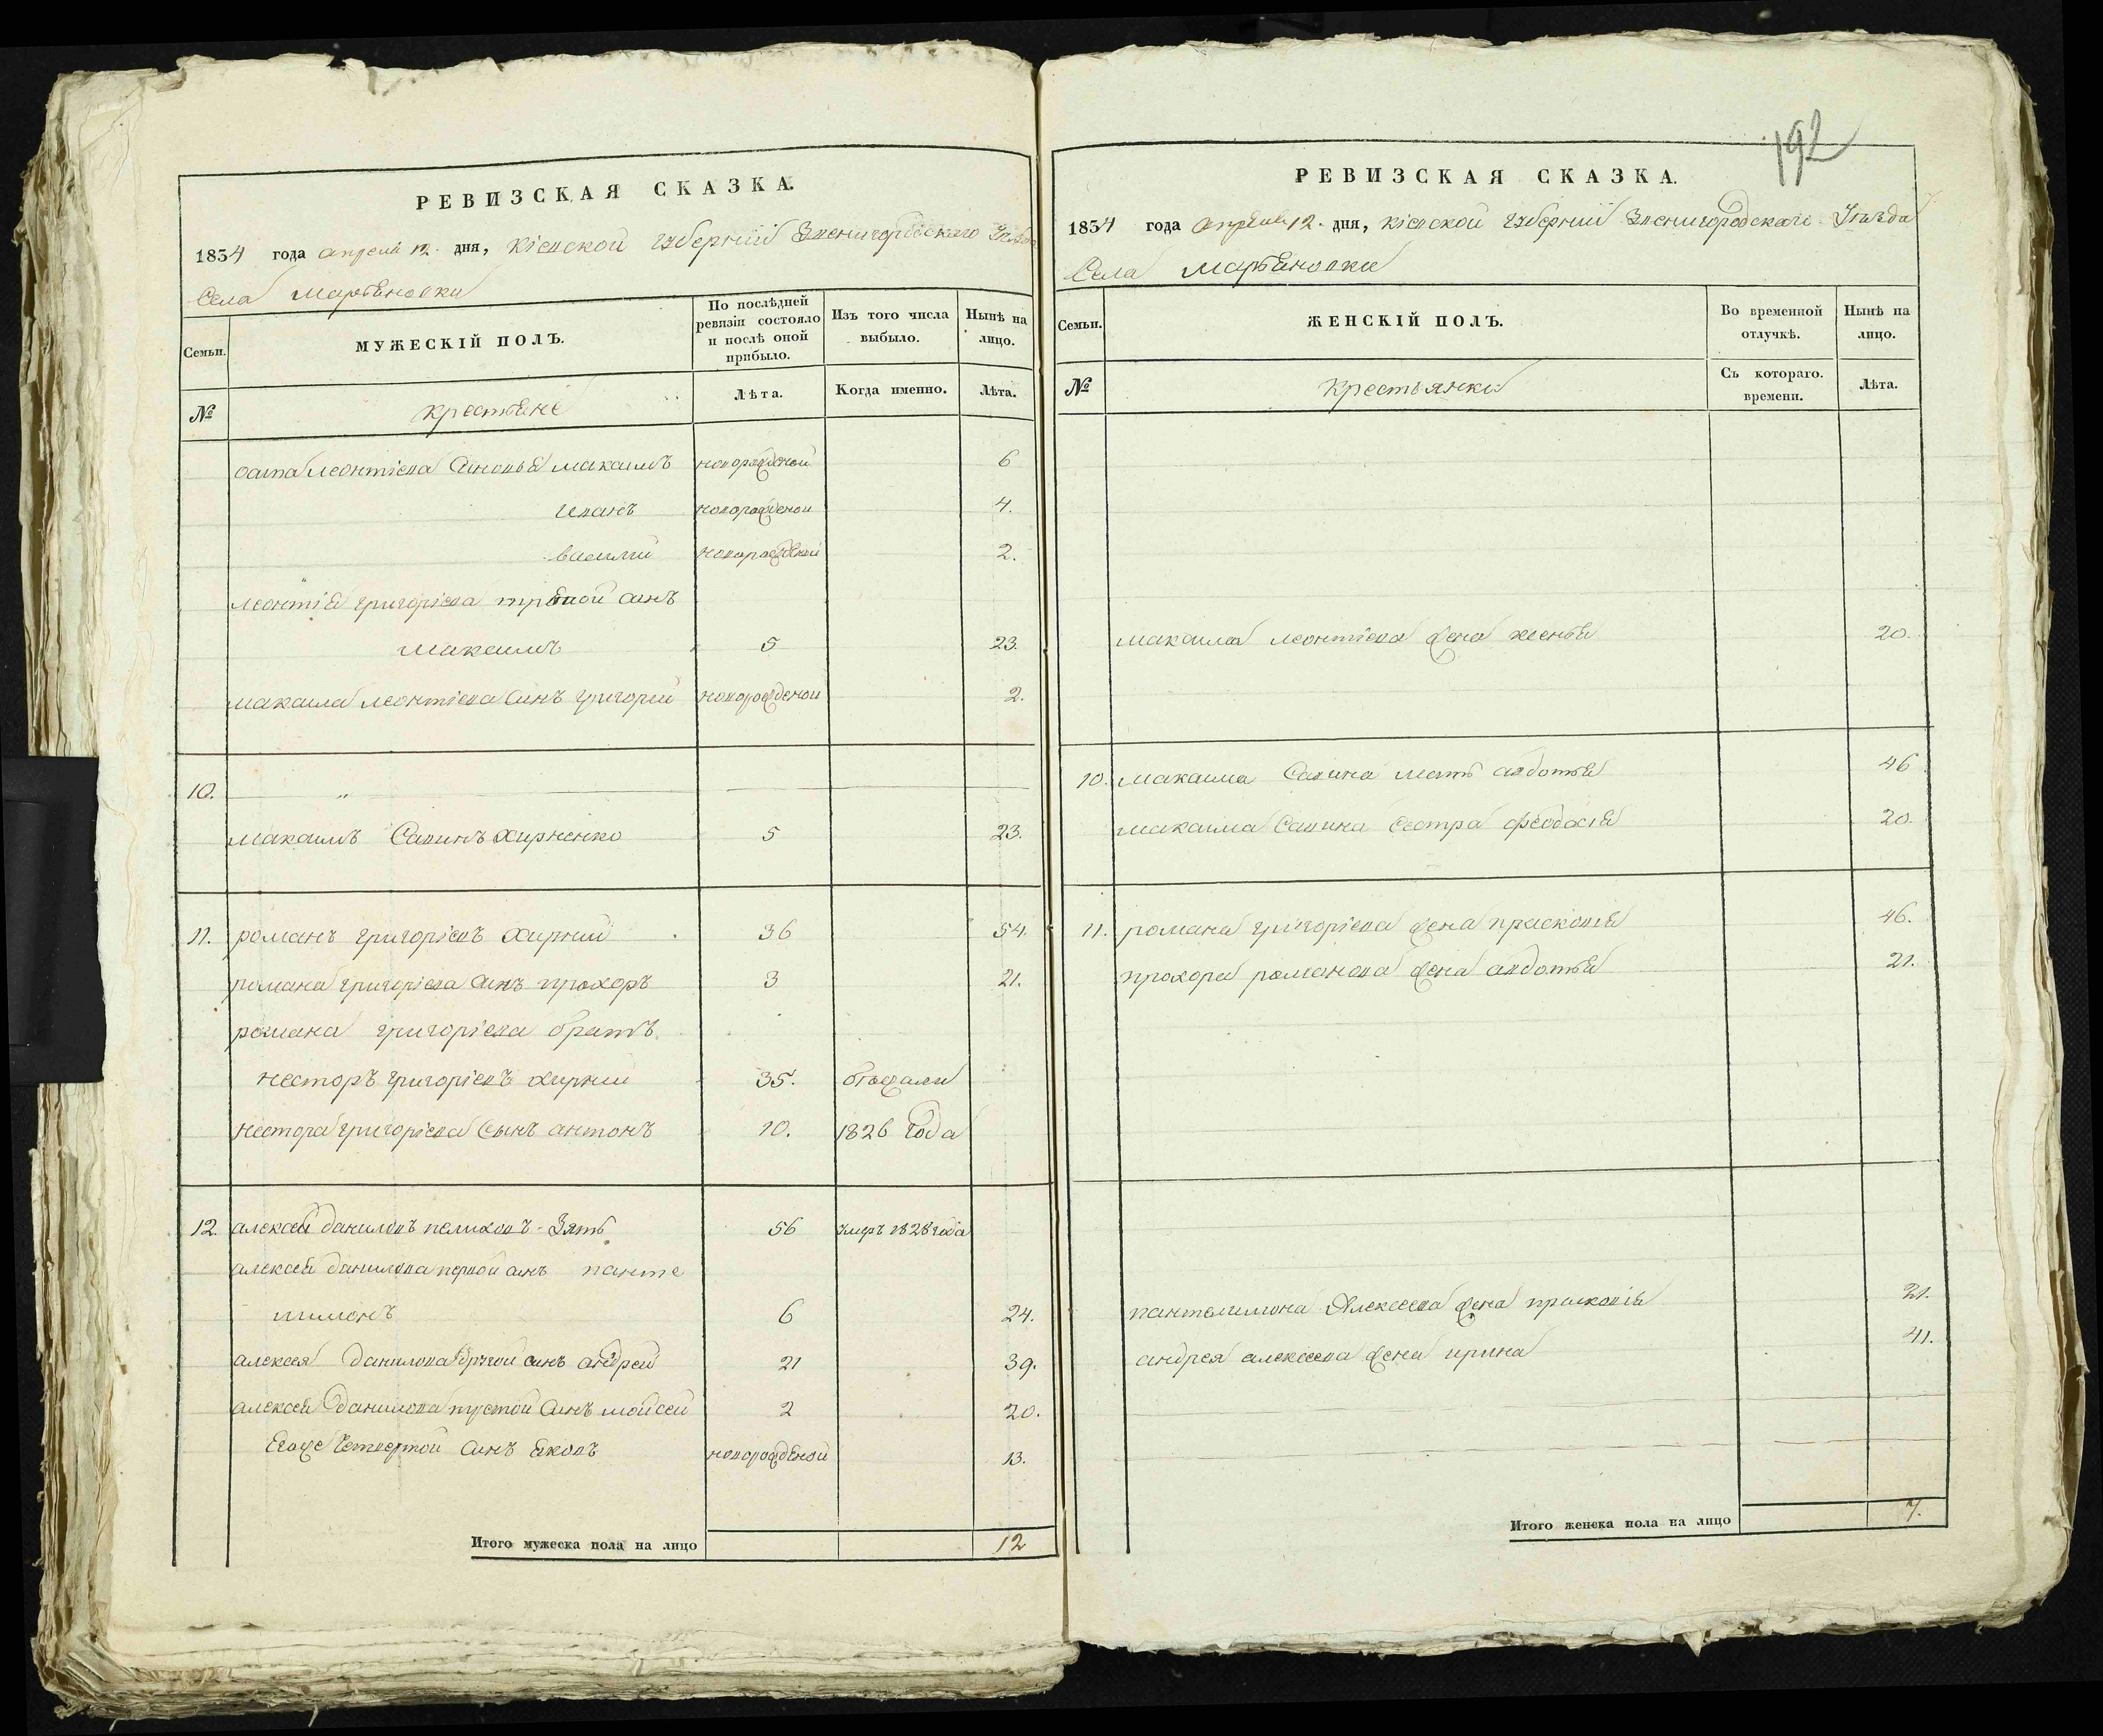 192
РЕВИЗСКАЯ СКАЗКА.
1834 года апреля 12. дня, кіевской губерніи Звенигородскаго Уезда
Села Мартяновки
Семьи. МУЖЕСКІЙ ПОЛЪ. По послѣдней ревизіи состояло и послѣ оной прибыло. Изъ того числа выбыло. Нынѣ на лицо.
№ крестяне Лѣта. Когда именно. Лѣта.
леонтіева синовья максимъ новорожденой 6
иванъ новорожденой 4.
василий новорожденой 2.
леонтія григоріева синъ
максимъ 5 23.
максима леонтіева синъ григорий новорожденой 2.
10.
максимъ Савинъ хирненко 5 23.
11. романъ григоріевъ хирний 36 54.
романа григоріева синъ прохоръ 3 21.
романа григоріева братъ
несторъ григоріевъ хирний 35. бежали
нестора григоріева сынъ антонъ 10. 1826 года
12. алексей даниловъ Зять 56 умръ 1828 года
алексея данилова первой синъ панте
лимонъ 6 24.
алексея данилова другой синъ андрей 21 39.
алексея данилова синъ мойсей 2 20.
Егоже Четвертой синъ яковъ новорожденой 13.
Итого мужеска пола на лицо 12
РЕВИЗСКАЯ СКАЗКА.
1834 года апреля 12. дня, кіевской губерніи Звенигородскаго Уезда
Села Мартяновки
Семьи. ЖЕНСКІЙ ПОЛЪ. Во временной отлучкѣ. Нынѣ на лицо.
№ крестьянки Съ котораго. времени. Лѣта.
максима леонтіева жена ксенья 20.
10. максима Савина мать авдотья 46
максима Савина Сестра феодосія 20.
11. романа григоріева жена прасковія 46.
прохора романова жена авдотья 21.
пантелимона Алексеева жена прасковія 21.
андрея алексеева жена ирина 41.
Итого женска пола на лицо 7.